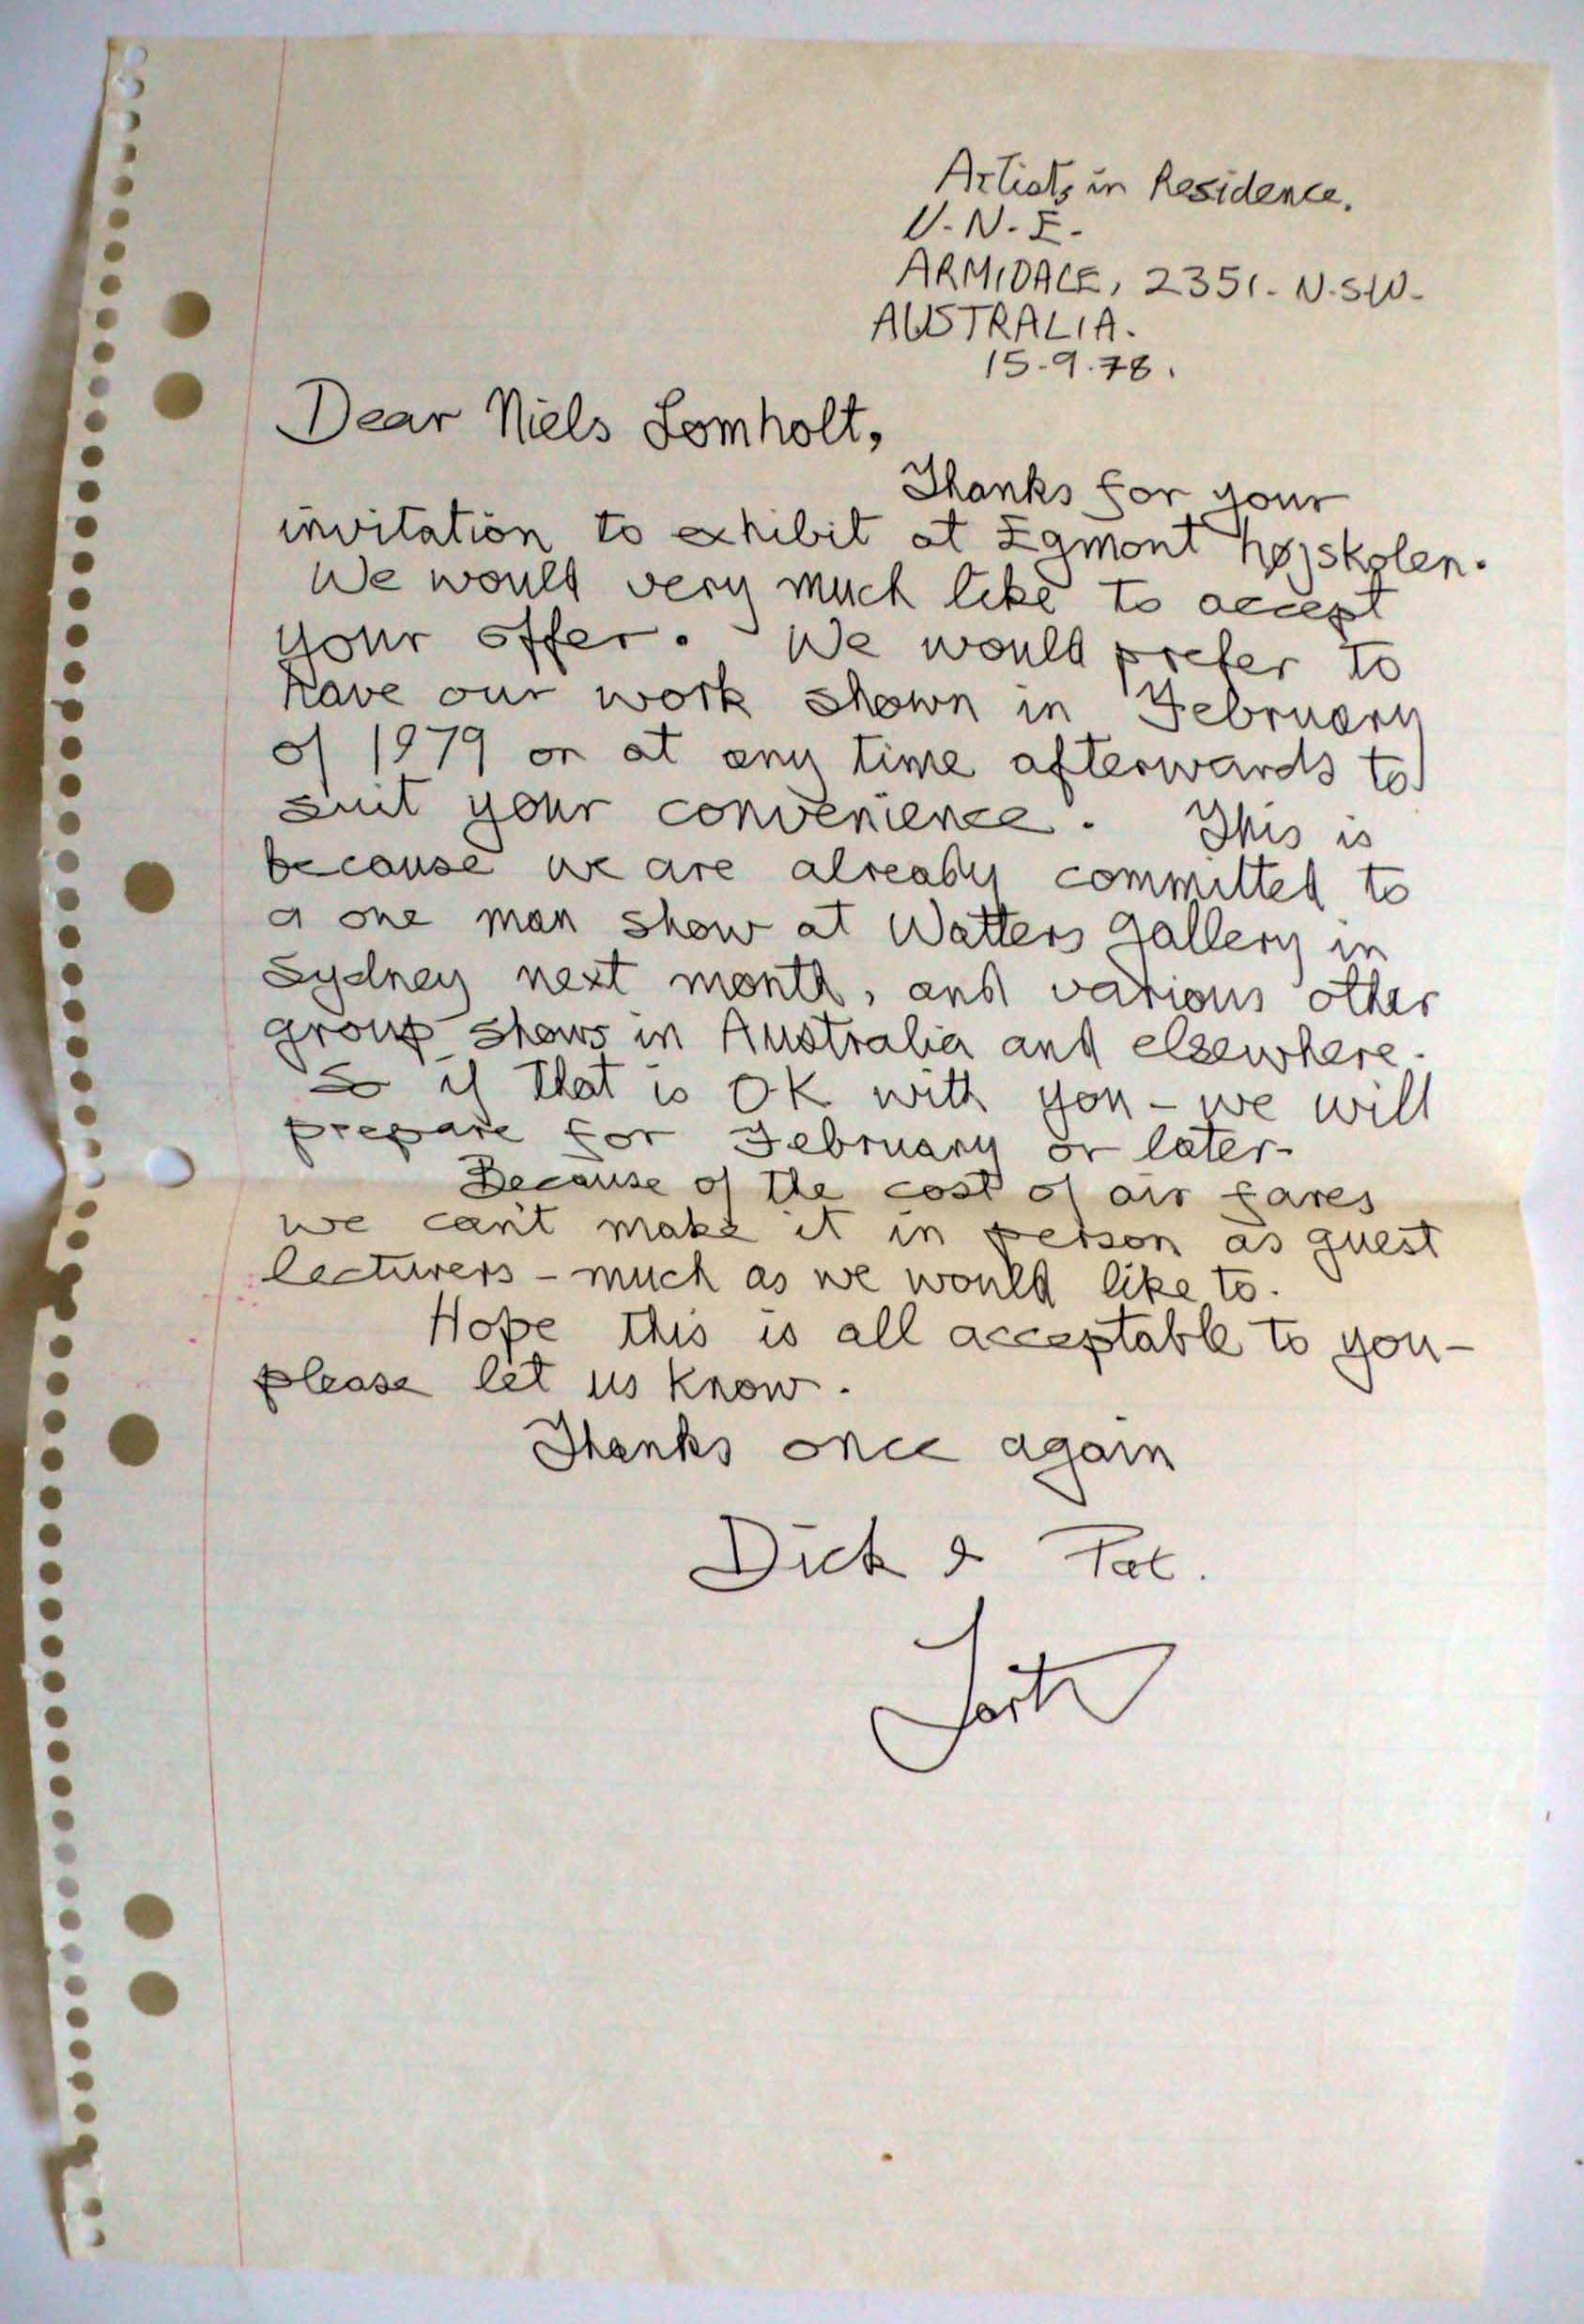 Artists in Residence.
U.N.E.
ARMIDALE, 2351. N.S.W.
AUSTRALIA.
15.9.78.
Dear Niels Lomholt,
Thanks for your
invitation to exhibit at Egmont højskolen.
We would very much like to accept
your offer. We would prefer to
have our work shown in February
of 1979 or at any time afterwards to
suit your convenience. This is
because we are already committed to
a one man show at Watters Gallery in
Sydney next month, and various other
group shows in Australia and elsewhere.
So if that is OK with you - we will
prepare for February or later.
Because of the cost of air fares
we can't make it in person as guest
lecturers - much as we would like to.
Hope this is all acceptable to you -
please let us know.
Thanks once again
Dick & Pat.